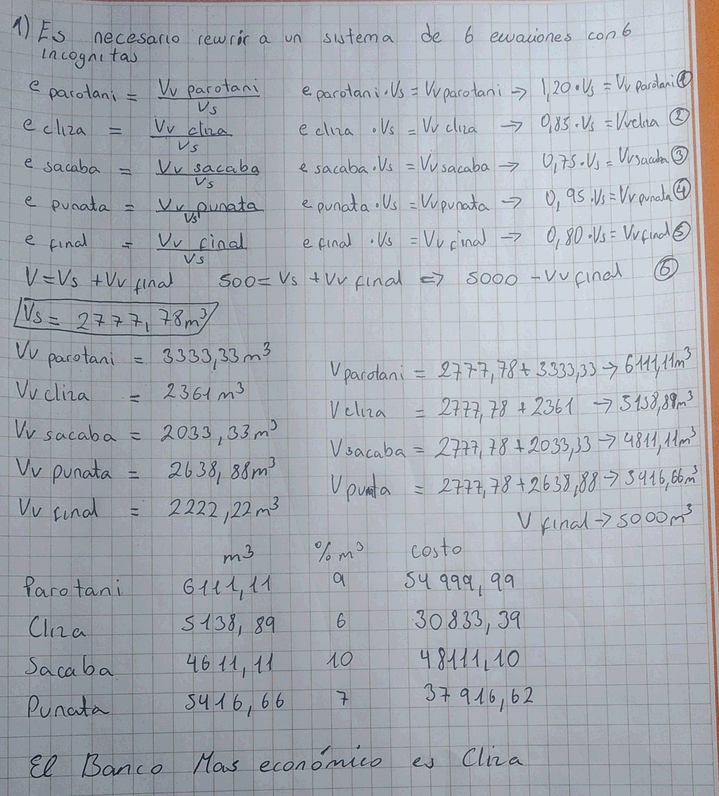 1) Es necesario rewrir a un sistema de 6 ewaciones con 6
incognitas
e parotani = Vv parotani / Vs e parotani · Vs = Vv parotani → 1,20 · Vs = Vv parotani ①
e cliza = Vv cliza / Vs e cliza · Vs = Vv cliza → 0,85 · Vs = Vv cliza ②
e sacaba = Vv sacaba / Vs e sacaba · Vs = Vv sacaba → 0,75 · Vs = Vv sacaba ③
e punata = Vv punata / Vs e punata · Vs = Vv punata → 0,95 · Vs = Vv punata ④
e final = Vv final / Vs e final · Vs = Vv final → 0,80 · Vs = Vv final ⑤
V = Vs + Vv final 500 = Vs + Vv final => 5000 - Vv final ⑥
Vs = 2777,78 m³
Vv parotani = 3333,33 m³
Vv cliza = 2361 m³
Vv sacaba = 2033,33 m³
Vv punata = 2638,88 m³
Vv final = 2222,22 m³
V parotani = 2777,78 + 3333,33 → 6111,11 m³
V cliza = 2777,78 + 2361 → 5138,89 m³
V sacaba = 2777,78 + 2033,33 → 4811,11 m³
V punta = 2777,78 + 2638,88 → 5416,66 m³
V final → 5000 m³
m³ % m³ costo
Parotani 6111,11 9 54 999,99
Cliza 5138,89 6 30833,39
Sacaba 4611,11 10 48111,10
Punata 5416,66 7 37 916,62
El Banco Mas económico es Cliza